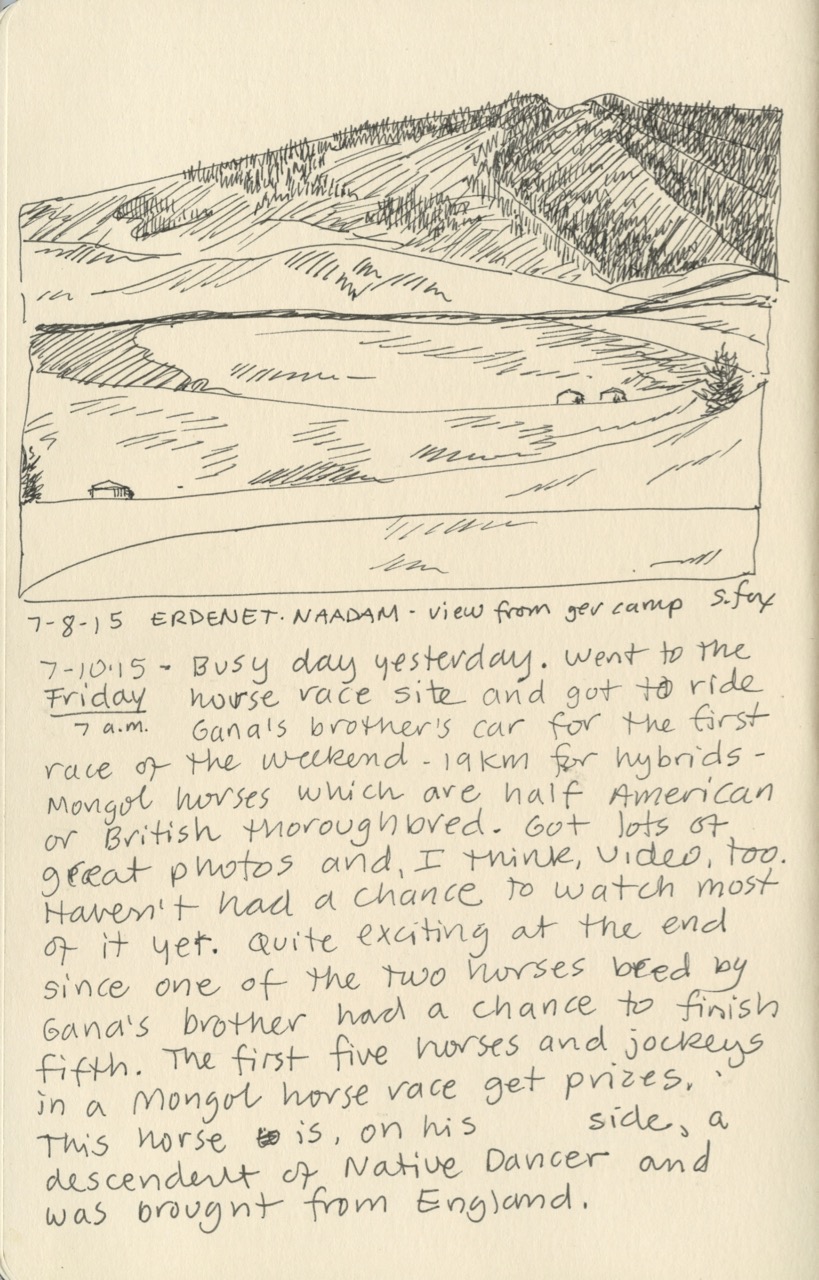 7-8-15 ERDENET. NAADAM - view from ger camp S. Fox
7-10-15 - Busy day yesterday. Went to the
Friday horse race site and got to ride
7 a.m. Gana's brother's car for the first
race of the weekend - 19km for hybrids -
Mongol horses which are half American
or British thoroughbred. Got lots of
great photos and, I think, video, too.
Haven't had a chance to watch most
of it yet. Quite exciting at the end
since one of the two horses breed by
Gana's brother had a chance to finish
fifth. The first five horses and jockeys
in a Mongol horse race get prizes.
This horse is, on his side, a
descendent of Native Dancer and
was brought from England.